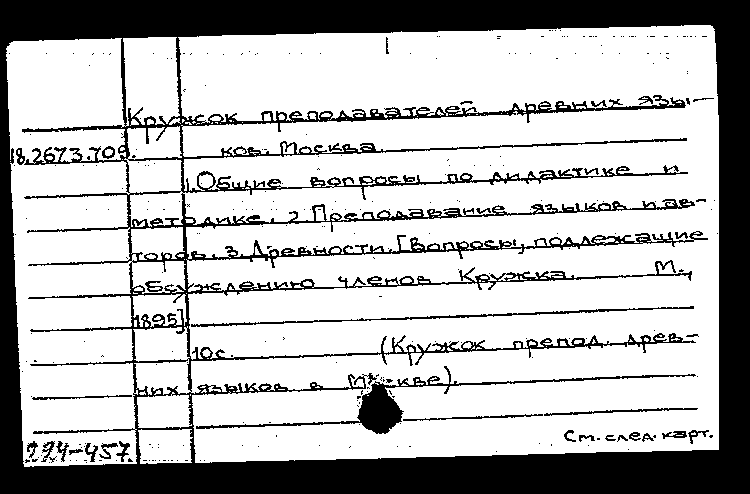 Кружок преподавателей древних язы-
18.2673.709. ков. Москва.
1. Общие вопросы по дидактике и
методике. 2 Преподавание языков и ав-
торов. 3. Древности. [Вопросы, подлежащие
обсуждению членов Кружка. М.,
1895]
10с. (Кружок препод. древ-
них языков в Москве).
224-457
См. след. карт.